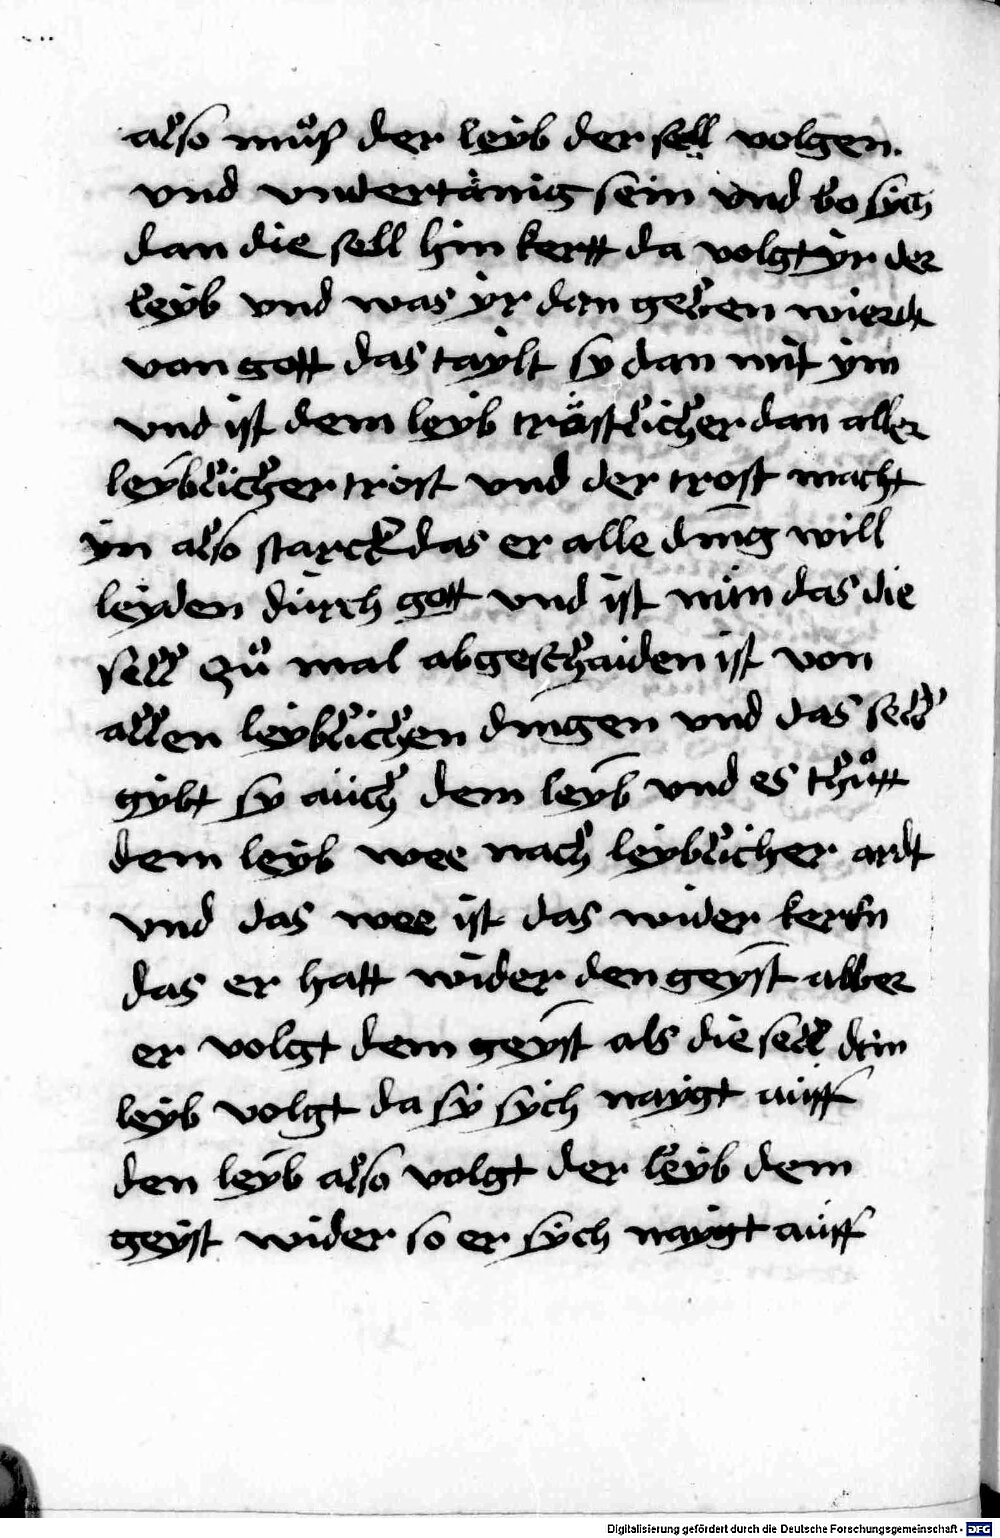 also muͦß der leyb der sell volgen.
vnd vntertänig sein vnd wo sych
dan die sell hin kertt da volgt yr der
leyb vnd was yr dan geben wierdt
von gott das taylt sy dan mit ym
vnd ist dem leyb tröstlicher dan aller
leyblicher trost vnd der trost macht
yn also starck das er alle ding will
leyden durch gott vnd ist nun das die
sell zuͦ mal abgeschaiden ist von
allen leyblichen dingen vnd das sell
gybt sy auch dem leyb vnd es thuͦtt
dem leyb wee nach leyblicher ardt
vnd das wee ist das wider kern
das er hatt wider den geyst abber
er volgt dem geyst als die sell dem
leyb volgt da sy sych naygt auff
den leyb also volgt der leyb dem
geyst wider so er sych naygt auff
Digitalisierung gefördert durch die Deutsche Forschungsgemeinschaft - DFG